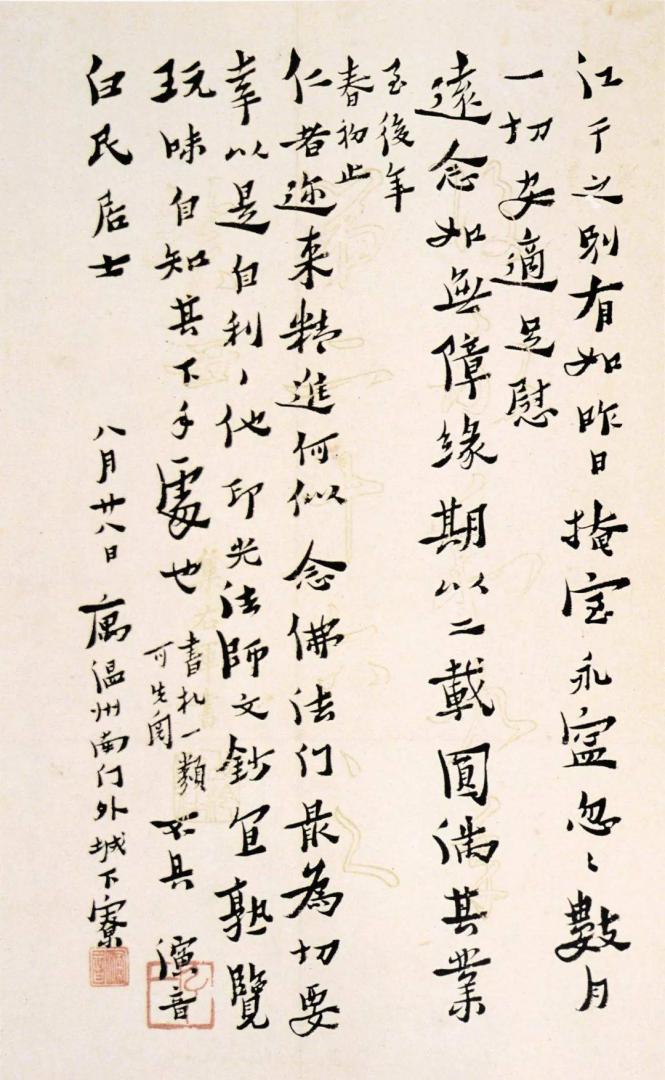 江干之别有如昨日掩室永寧忽々數月
一切安適足慰
遠念如無障緣期以二載圓滿其業
至後年
春初止
仁者邇來精進何似念佛法门最為切要
幸以是自利〻他印光法師文鈔宜熟覽
玩味自知其下手處也
書札一類
可先閱
不具 演音
白民居士
八月廿八日 寓温州南门外城下寮